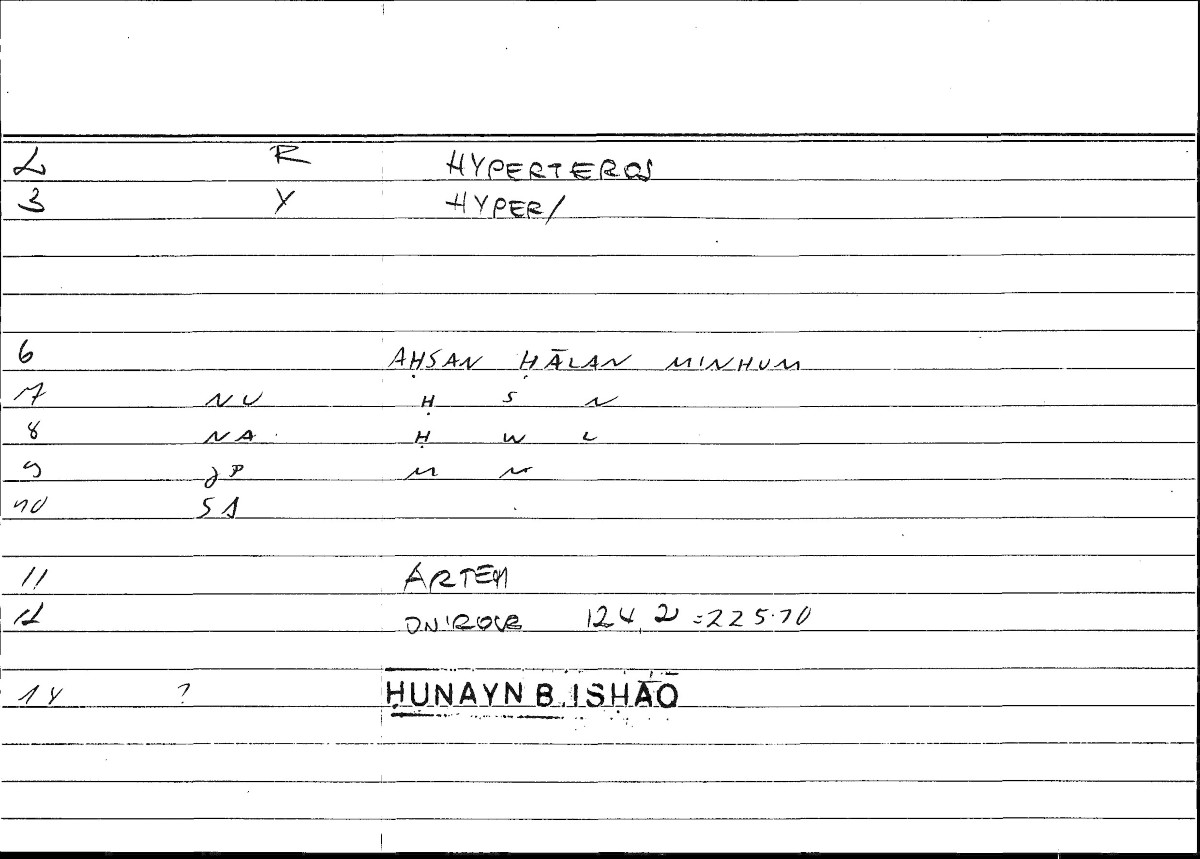 2 R HYPERTEROS
3 Y HYPER/
6 AḤSAN ḤĀLAN MINHUM
7 NU Ḥ S N
8 NA Ḥ W L
9 JP M N
10 SA
11 ARTEM
12 ONIROCR 124,2 = 225.10
14 ? ḤUNAYN B. ISḤĀQ